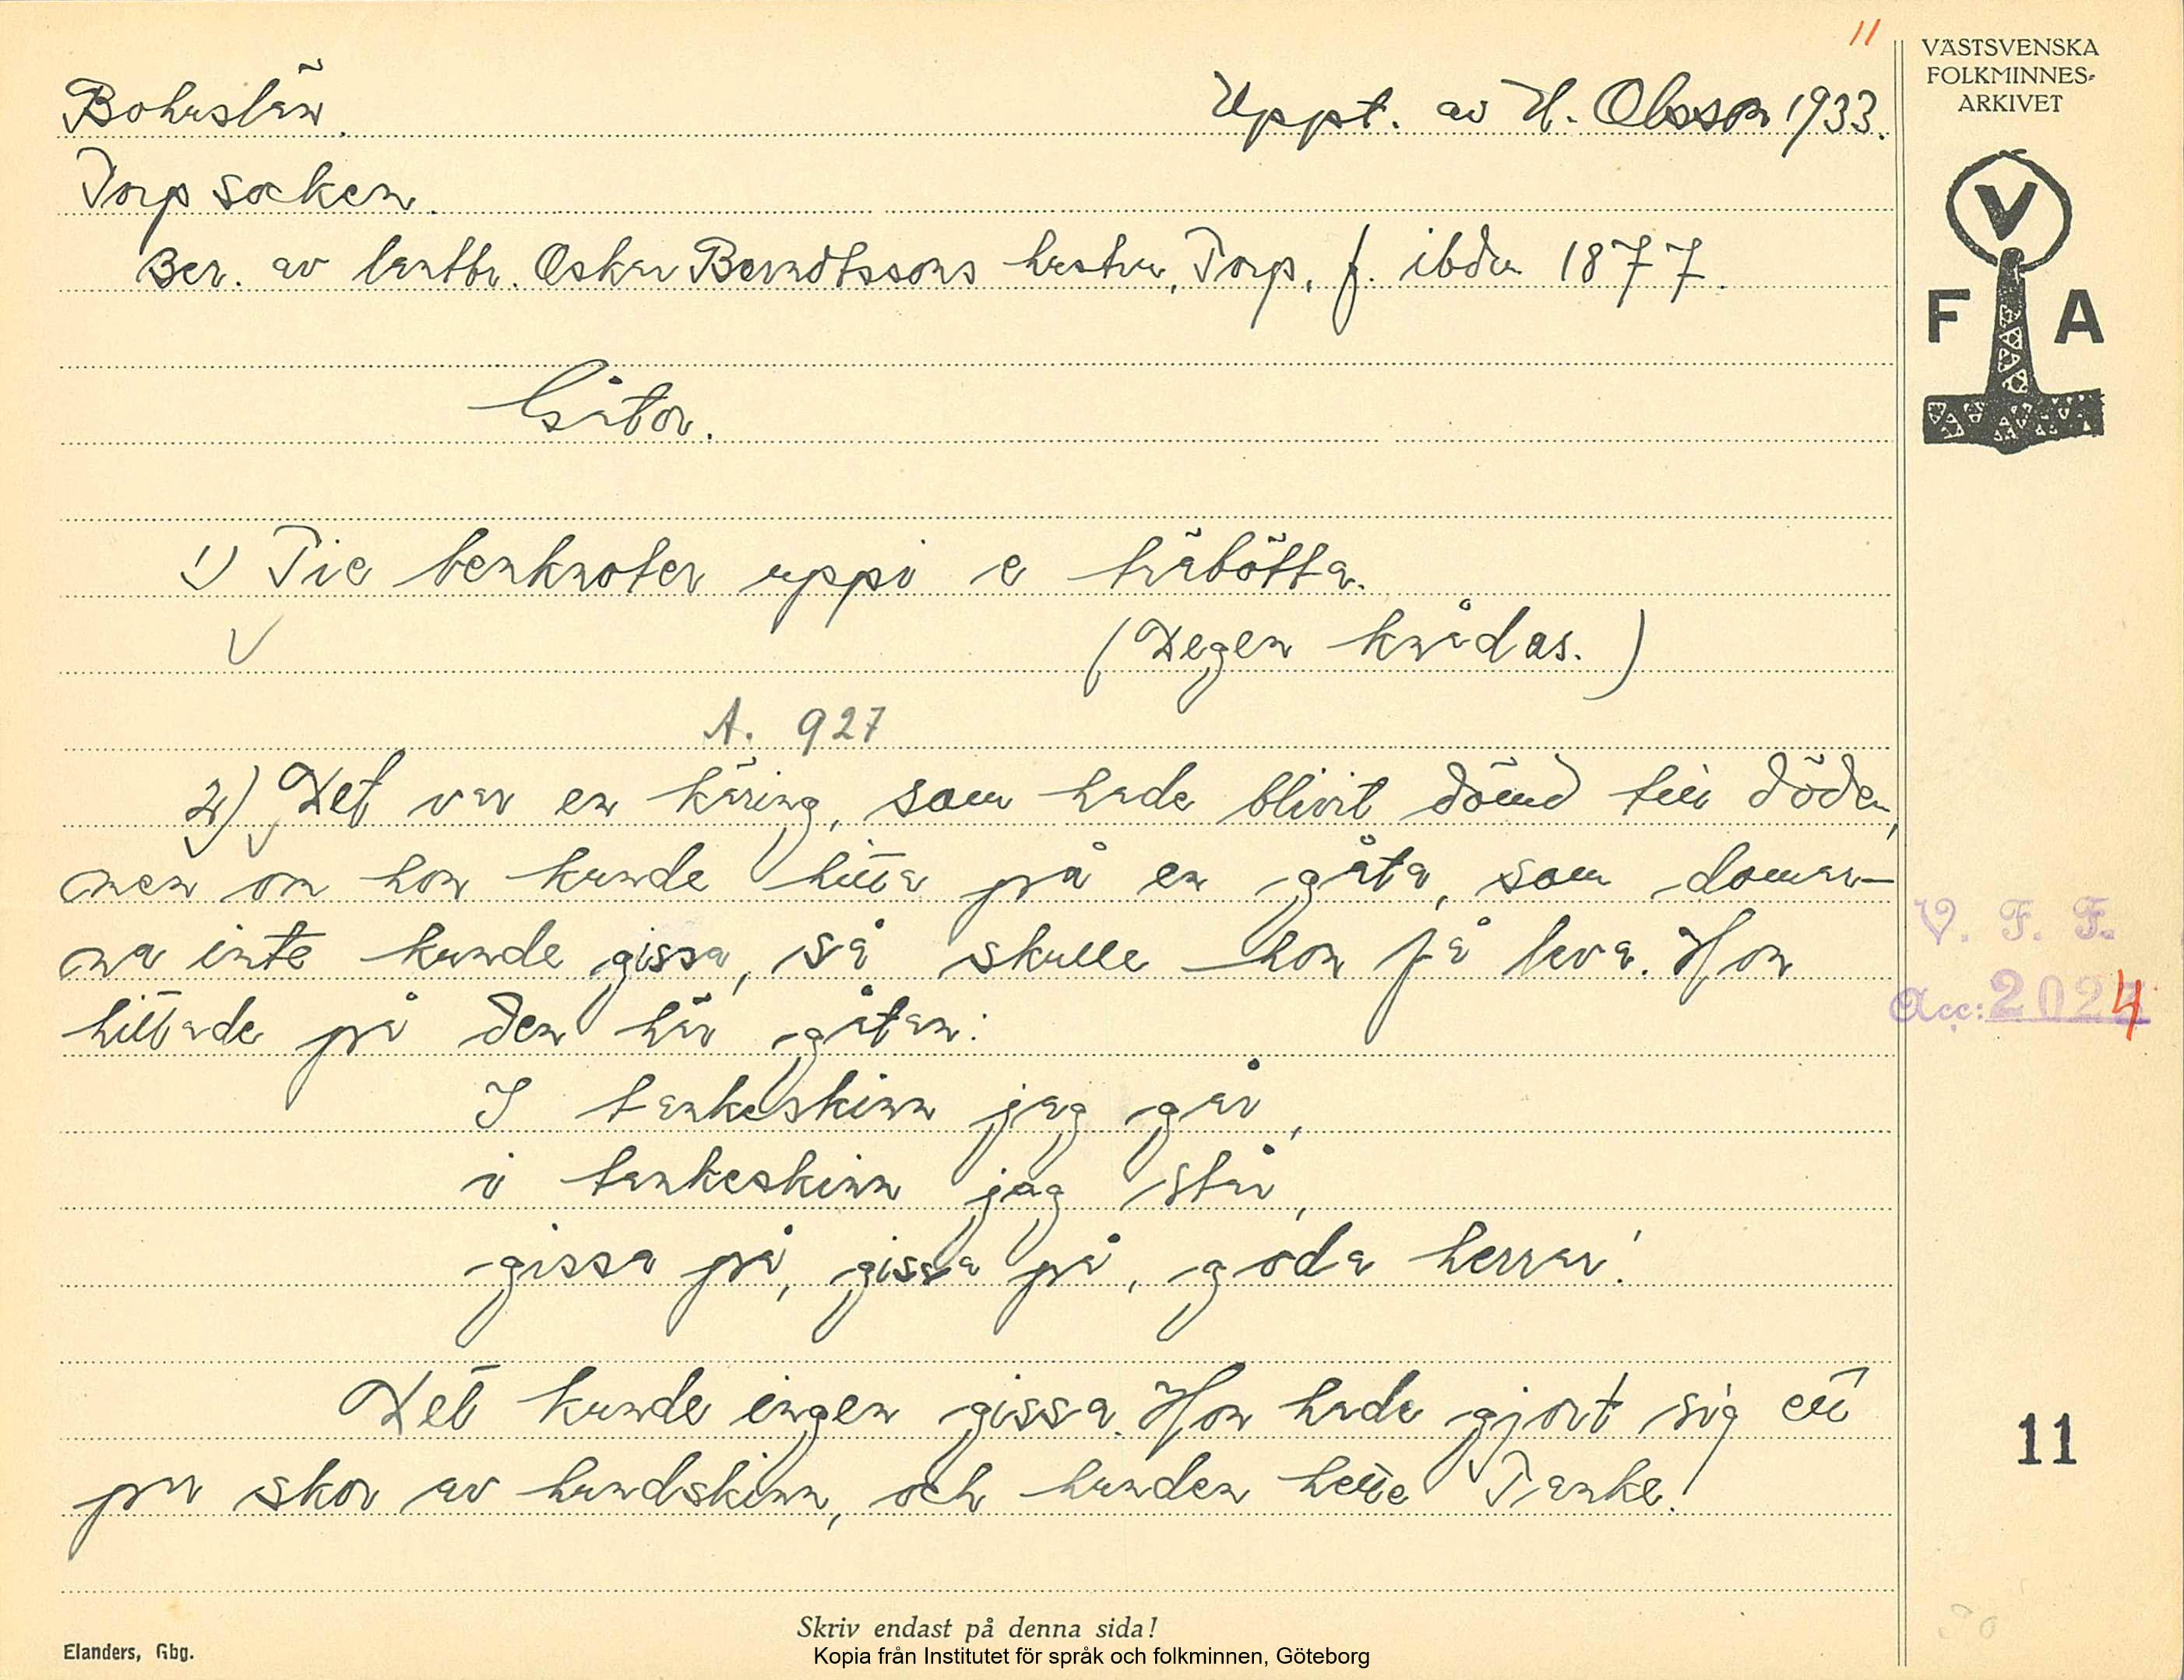 11
Bohuslän.
Uppt. av H. Olsson 1933.
Torp socken.
Ber. av lantbr. Oskar Berndtssons hustru, Torp, f. ibdm 1877.
Gåtor.
1) Tie benknoter uppi e träbötta.
(Degen knådas.)
A. 927
2) Det var en käring, som hade blivit dömd till döden,
men om hon kunde hitta på en gåta, som domar-
na inte kunde gissa, så skulle hon få leva. Hon
hittade på den här gåtan:
I tankeskinn jag går,
i tankeskinn jag står,
gissa på, gissa på, goda herrar!
Det kunde ingen gissa. Hon hade gjort sig ett
par skor av hundskinn, och hunden hette Tanke.
VÄSTSVENSKA
FOLKMINNES-
ARKIVET
V
F A
V. F. F.
Acc: 2024
11
Skriv endast på denna sida!
Elanders, Gbg.
Kopia från Institutet för språk och folkminnen, Göteborg